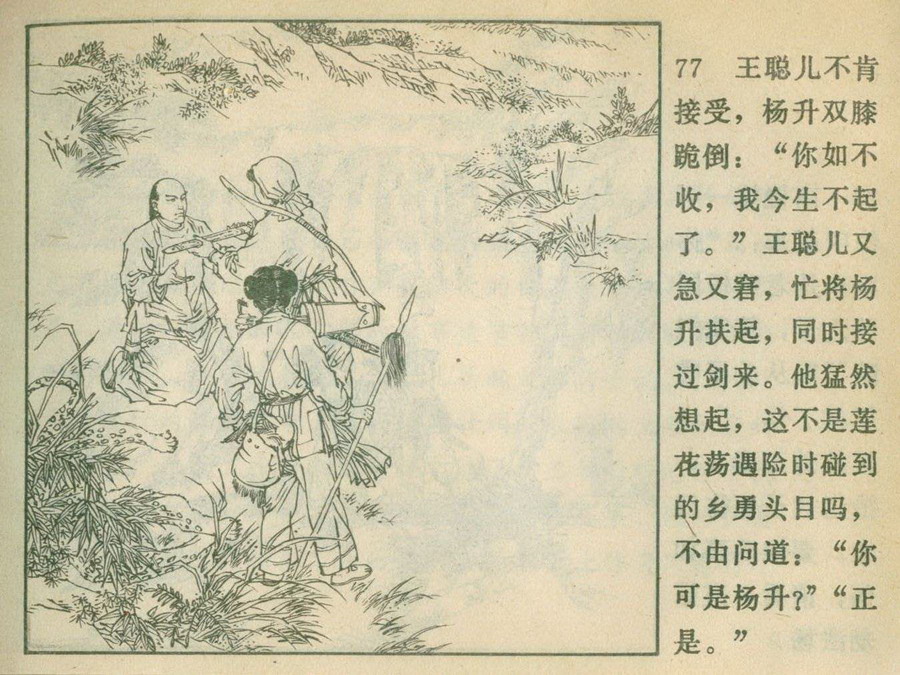 77　王聪儿不肯
接受，杨升双膝
跪倒：“你如不
收，我今生不起
了。”王聪儿又
急又窘，忙将杨
升扶起，同时接
过剑来。他猛然
想起，这不是莲
花荡遇险时碰到
的乡勇头目吗，
不由问道：“你
可是杨升？”“正
是。”